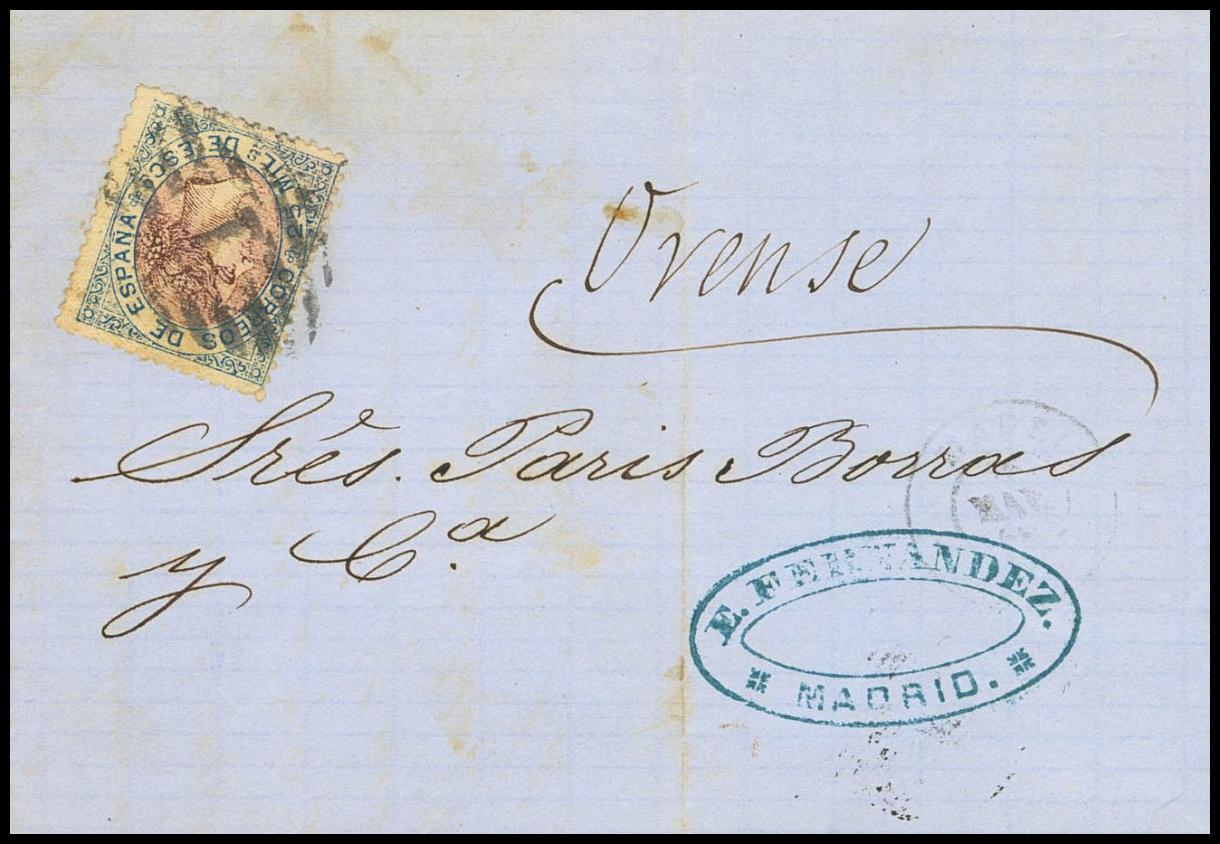 CORREOS DE ESPAÑA 25 MIL.s DE ESCO
Orense
Srés. Paris Borras
y C.a
MAY
E. FERNANDEZ.
MADRID.